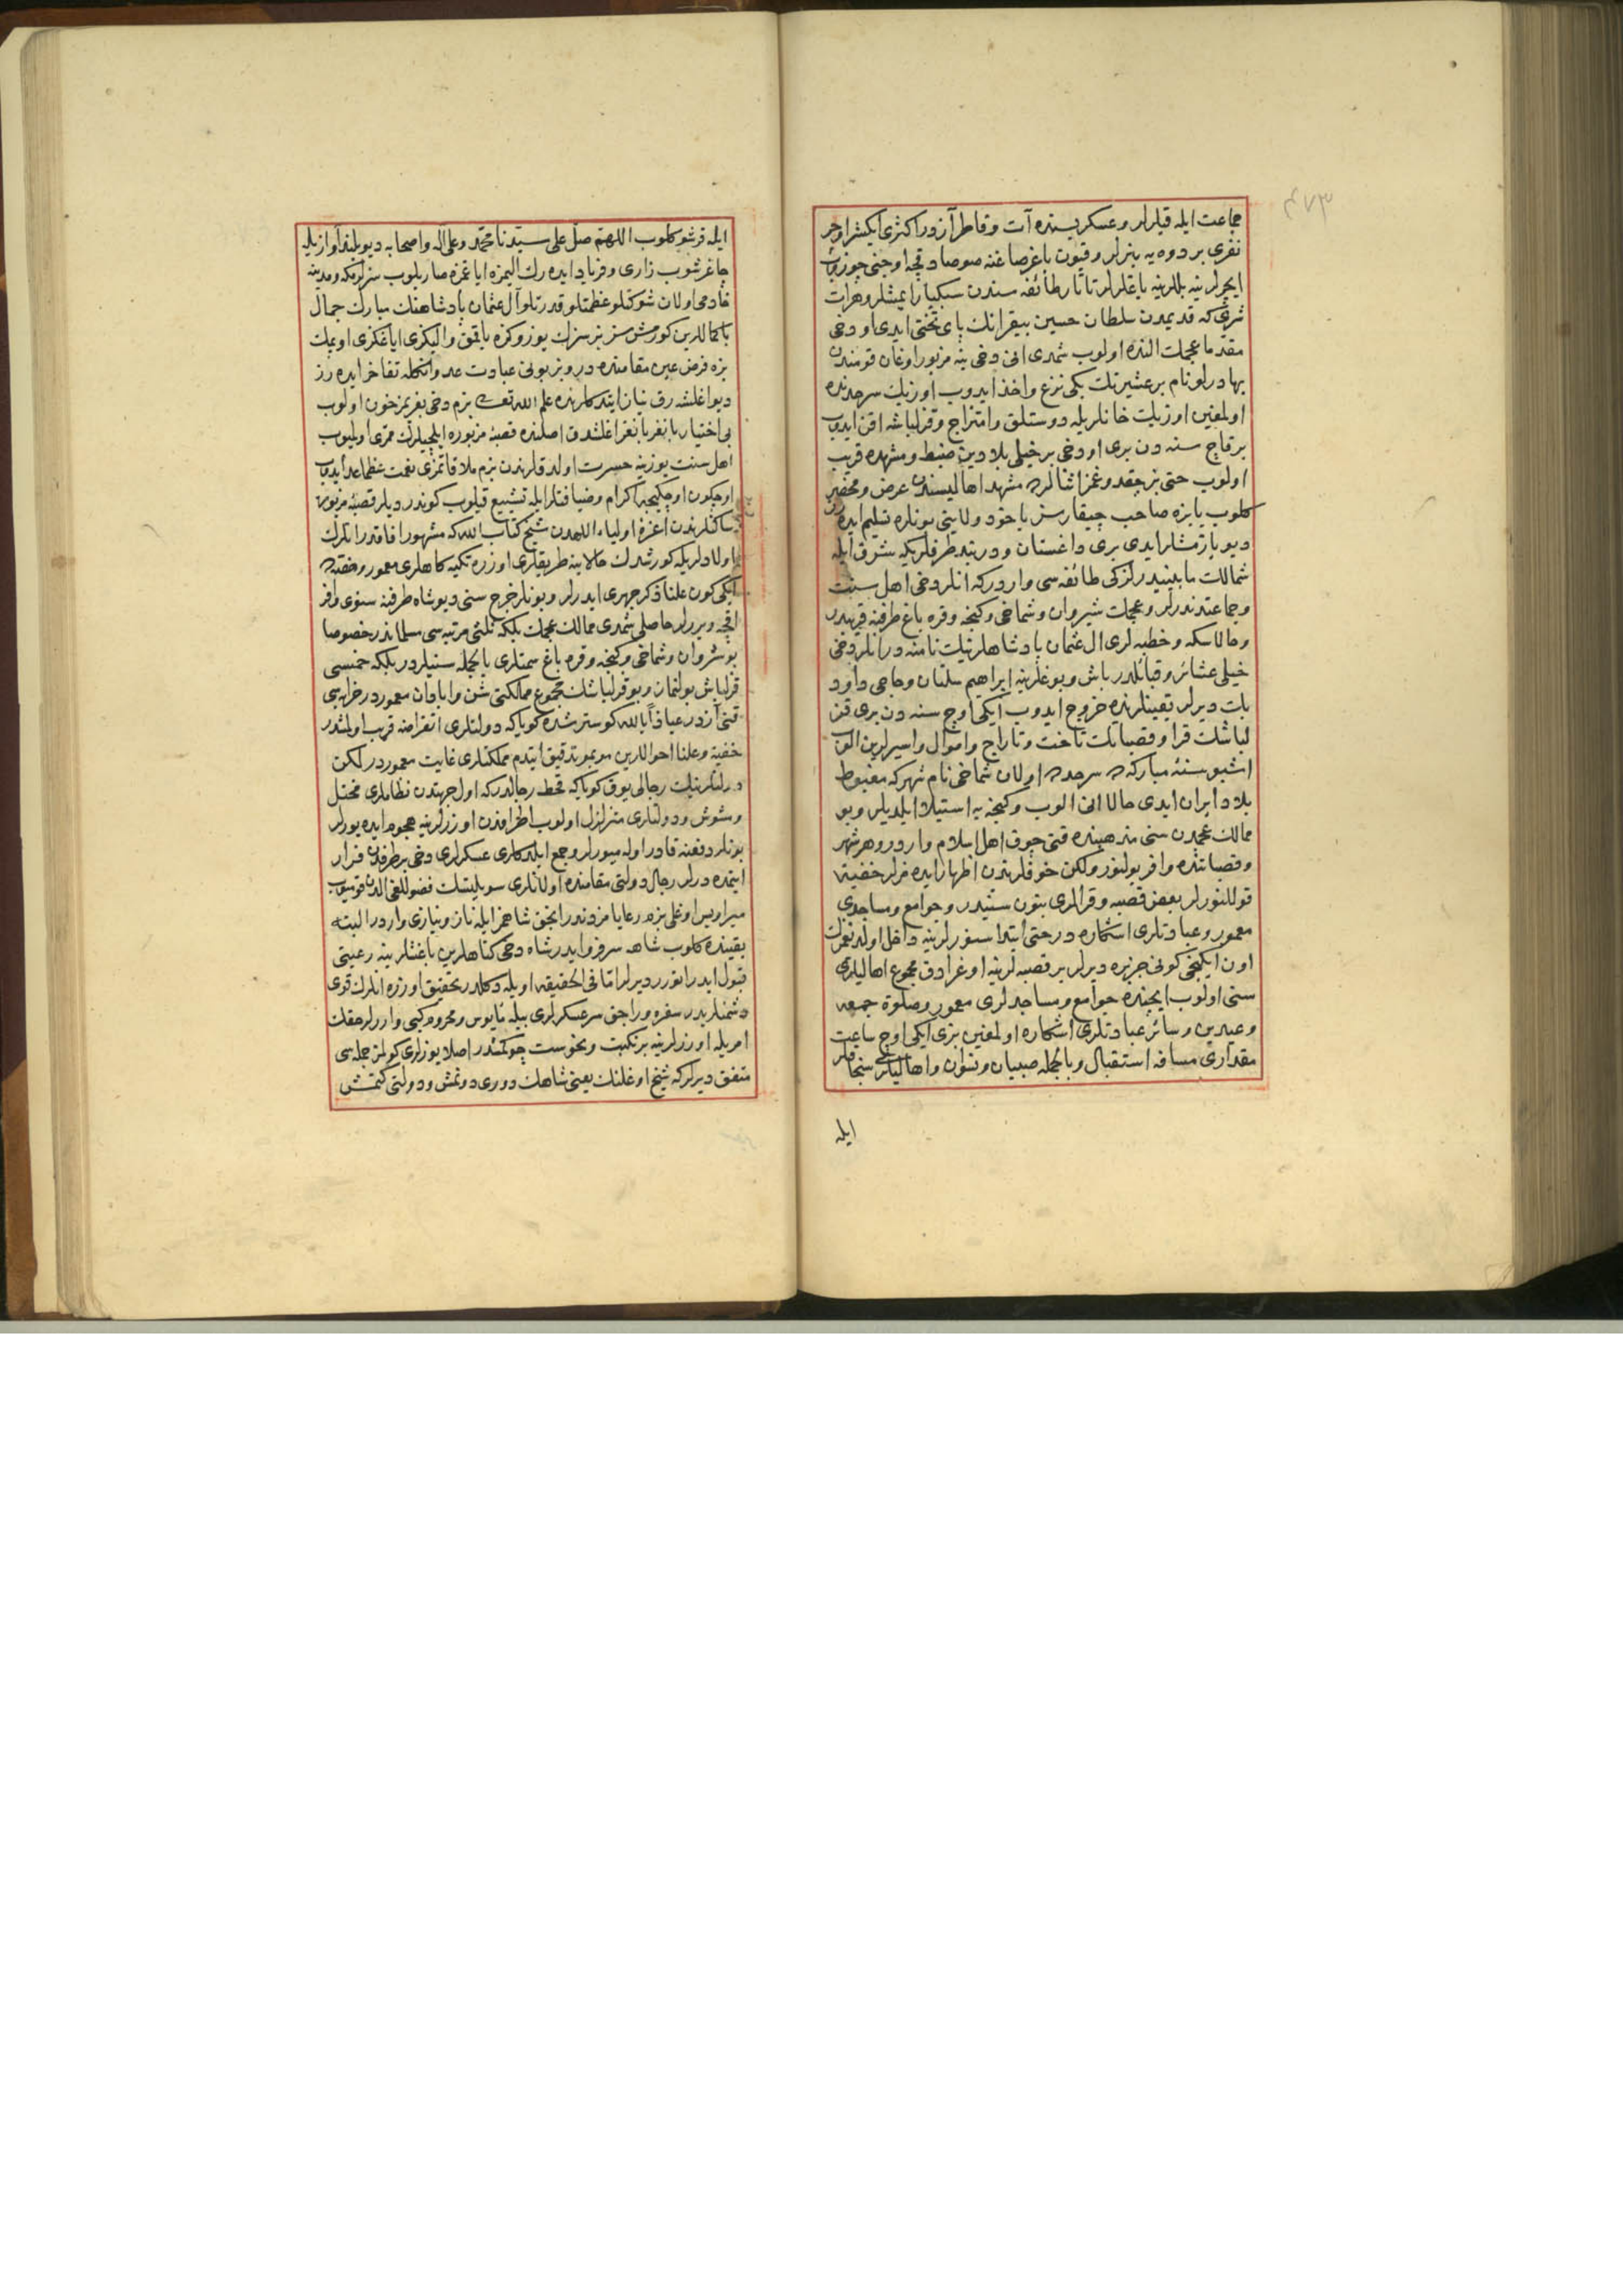 جماعت ایله قیلرلر و عسکریسنده آت و قاطر آزدر اکثری ایکیشر اوچر
نفری بر دوه یه بنرلر و قیون باغرصاغنه صو صادقجه اوجنی چوزوب
ایچرلر ینه بللرینه باغلرلر تاتار طائفه سندن سبکبار ایمشلر و هرات
شرقی که قدیمدن سلطان حسین بیقرانك پای تختی ایدی او دخی
مقدما عجمك النده اولوب شمدی انی دخی ینه مزبور اوغان قومندن
بهادرلو نام بر عشیرتك بکی نزع و اخذ ایدوب اوزبك سرحدنده
اولمغین اوزبك خانلریله دوستلق و امتزاج و قزلباشه اقن ایدوب
بر قاچ سنه دن بری او دخی بر خیلی بلادین ضبط و مشهده قریب
اولوب حتی بز چقدوغمز اثنالرده مشهد اهالیسندن عرض و محضر
کلوب یا بزه صاحب چیقارسز یاخود ولایتی بونلره تسلیم ایدرز
دیو یازمشلر ایدی بری داغستان و دربند طرفلریکه شرق ایله
شمالك مابینیدر لزکی طائفه سی واردرکه انلر دخی اهل سنت
و جماعتدندرلر و عجمك شیروان و شماخی و کنجه و قره باغ طرفنه قریبدر
و حالا سکه و خطبه لری ال عثمان پادشاهلرینك نامنه در انلر دخی
خیلی عشائر و قبائلدر باش و بوغلرینه ابراهیم سلتان و حاجی داود
بك دیرلر تعیینلرنده خروج ایدوب ایکی اوچ سنه دن بری قزل
لباشك قرا و قصباتك تاخت و تاراج و اموال و اسیرلرین الوب
اشبو سنۀ مبارکه ده سرحدده اولان شماخی نام شهرکه مغبوط
بلاد ایران ایدی حالا انی الوب و کنجه یه استیلا ایلدیلر و بو
ممالك عجمدن سنی مذهبنده قتی چوق اهل اسلام واردر و هر شهر
و قصباتنده وافر بولنور ولکن خوفلرندن اظهار ایده مزلر خفیة
قوللنورلر بعض قصبه و قرالری بتون سنیدر و جوامع و مساجدی
معمور و عبادتلری اشکاره در حتی ابتدا سنورلرینه داخل اولدیغمزك
اون ایکنجی کونی جزیره دیرلر بر قصبه لرینه اوغرادق مجموع اهالیلری
سنی اولوب ایچنده جوامع و مساجدلری معمور و صلوة جمعه
و عیدین و سائر عبادتلری اشکاره اولمغین بزی ایکی اوچ ساعت
مقداری مسافه استقبال و بالجمله صبیان و نسوان و اهالیلری سنجاقلر
ایله
ایله قرشو کلوب اللهم صل علی سیدنا محمد و علی اله و اصحابه دیو بلند آوازیله
چاغرشوب زاری و فریاد ایده رك الیمزه ایاغمزه صاریلوب سزلر مکه و مدینه
خادمی اولان شوکتلو عظمتلو قدرتلو آل عثمان پادشاهنك مبارك جمال
باکماللرین کورمش سز بز سزك یوزوکزه باقمق و الیکزی ایاغکزی اوپمك
بزه فرض عین مقامنده در و بز بونی عبادت عد و انکله تفاخر ایده رز
دیو اغلشه رق نیاز ایتدکلرنده علم الله تعالی بزم دخی بغریمز خون اولوب
بی اختیار بانغر بانغر اغلشدق اصلنده قصبۀ مزبوره ایلچیلرك ممری اولمیوب
اهل سنت یوزینه حسرت اولدقلرندن بزم ملاقاتمزی نعمت عظما عد ایدوب
اوچکون اوچکیجه اکرام و ضیافتلر ایله تشییع قیلوب کوندردیلر قصبۀ مزبوره
ساکنلرندن اعزه اولیاء اللهدن شیخ کتاب الله که مشهور افاقدر انلرك
اولادلریله کورشدك حالا ینه طریقلری اوزره تکیه کاهلری معمور و هفته ده
ایکی کون علنا ذکر جهری ایدرلر و بونلر خرج سنی دیو شاه طرفنه سنوی وافر
اقچه ویررلر حاصلی شمدی ممالك عجمك بلکه ثلثی مرتبه سی مسلماندر خصوصا
بو شروان و شماخی و کنجه و قره باغ سمتلری بالجمله سنیلردر بلکه خمسی
قزلباش بولنماز و بو قزلباشك مجموع مملکتی شن و ابادان معموردر خرابه سی
قتی آزدر عیاذا بالله کوسترشده کویاکه دولتلری انقراضه قریب اولمشدر
خفیة و علنا احواللرین مو بمو تدقیق ایتدم مملکتلری غایت معموردر لکن
دولتلرینك رجالی یوق کویاکه قحط رجالدرکه اول جهتدن نظاملری مختل
و مشوش و دولتلری متزلزل اولوب اطرافدن اوزرلرینه هجوم ایده یورلر
بونلر دفعنه قادر اوله میورلر و جمع ایلدکلری عسکرلری دخی بر طرفدن فرار
ایتمده درلر رجال دولتی مقامنده اولانلری سویلیشك فضوللغی الدن قومیوب
میر اویس اوغلی بزم رعایامزدندر انجق شاهمز ایله ناز و نیازی واردر البته
یقینده کلوب شاهه سرفرو ایدر شاه دخی کناهلرین باغشلر ینه رعیتی
قبول ایدر اتورر دیرلر اما فی الحقیقه اویله دکلدر تحقیق اوزره انلرك قوی
دشمنلریدر سفره وراجق سر عسکرلری بیله مأیوس و محروم کبی واررلر حقك
امریله اوزرلرینه بر نکبت و نحوست چوکمشدر اصلا یوزلری کولمز جمله سی
متفق دیرلرکه شیخ اوغلنك یعنی شاهك دوری دونمش و دولتی کتمش